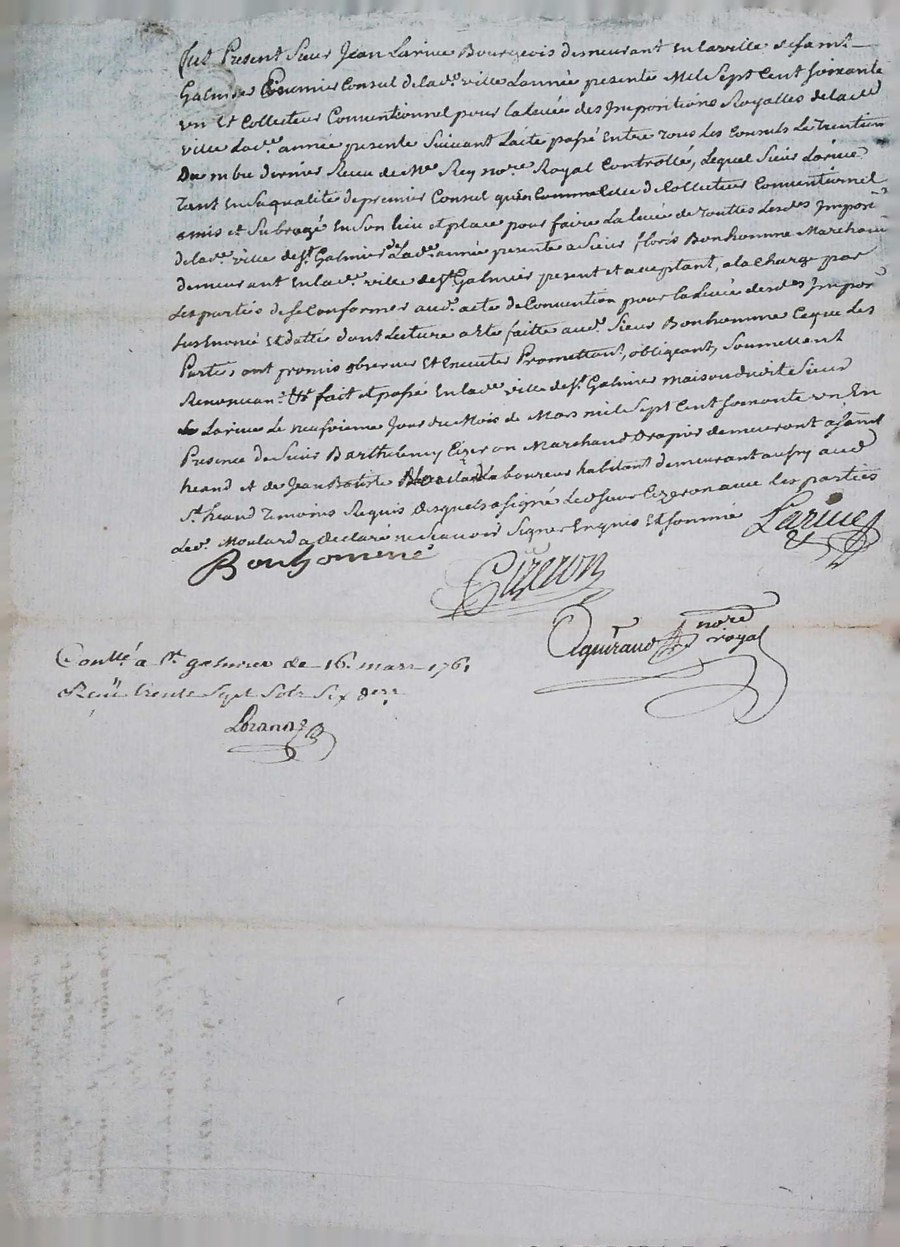 fut Present Sieur Jean Larive Bourgeois demeurant en la ville de saint
Galmier Premier Consul de lad.e ville L'année presente Mil Sept Cent soixante
un Et Collecteur Conventionnel pour la levée des Impositions Royalles de lade
ville lad.e année presente Suivant L'acte passé Entre tous les Consuls Le trentieme
dernier Receu de Me Rey no.re Royal Controllé, Lequel Sieur Larive
tant en sa qualité de premier Consul qu'en Comme Celle de Collecteur Conventionnel
amis et Subrogé en Son lieu et place pour faire La levée de touttes lesd.es Imposi.ons
de lad.e ville de S.t Galmier de lad.e année presente a Sieur floris Bonhomme Marchand
demeurant en lad.e ville de S.t Galmier present et acceptant, a la Charge par
Les parties de se Conformer aud.t acte de Convention pour la levée desd.es Imposi.ons
sus Enoncé Et datté dont lecture a Eté faitte aud.t Sieur Bonhomme Ce que les
Parties ont promis observer Et Executer Promettant, obligeant, Soumettant
Renonceant. fait et passé En lad.e ville de S.t Galmier maison dudit Sieur
Larive Le neufvieme Jour du Mois de Mars mil Sept Cent soixante un En
Presence de Sieur Barthelemy Cizeron Marchand Drapier demeurant a Saint
heand et de Jean Batiste Moulard Laboureur habitant demeurant aud
S.t heand Temoins Requis desquels a signé led Sieur Cizeron avec les parties
Led.t Moulard a declaré ne Scavoir Signer Enquis Et sommé Larive
Bonhomme
Cizeron
Aguiraud no.re
royal
Con.llé a S.t galmier le 16. mars 1761
Reçu trente Sept Sols Six den.rs